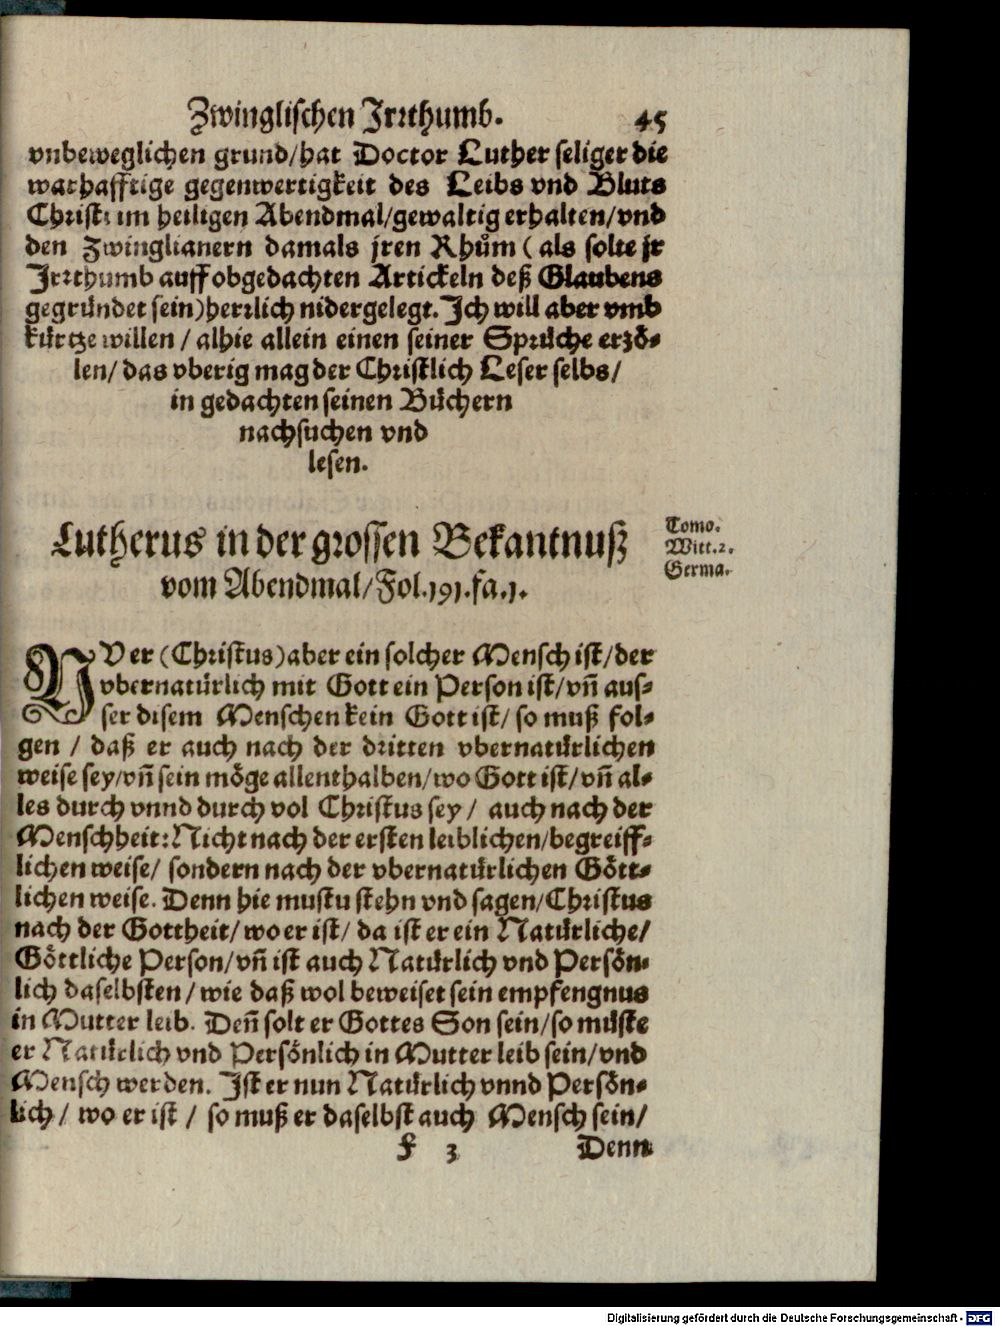 Zwinglischen Jrrthumb. 45
vnbeweglichen grund/hat Doctor Luther seliger die
warhafftige gegenwertigkeit des Leibs vnd Bluts
Christi im heiligen Abendmal/gewaltig erhalten/vnd
den Zwinglianern damals jren Rhům (als solte jr
Jrrthumb auff obgedachten Artickeln deß Glaubens
gegründet sein)herrlich nidergelegt. Jch will aber vmb
kürtze willen / alhie allein einen seiner Sprüche erzö-
len/ das vberig mag der Christlich Leser selbs/
in gedachten seinen Büchern
nachsuchen vnd
lesen.
Lutherus in der grossen Bekantnuß
vom Abendmal/Fol.191.fa.1.
Tomo.
Witt.2.
Germa.
NVn er (Christus)aber ein solcher Mensch ist/der
vbernatürlich mit Gott ein Person ist/vñ aus-
ser disem Menschen kein Gott ist/ so muß fol-
gen / daß er auch nach der dritten vbernatürlichen
weise sey/vñ sein möge allenthalben/wo Gott ist/vñ al-
les durch vnnd durch vol Christus sey / auch nach der
Menschheit: Nicht nach der ersten leiblichen/begreiff-
lichen weise/ sondern nach der vbernatürlichen Gött-
lichen weise. Denn hie mustu stehn vnd sagen/Christus
nach der Gottheit/ wo er ist/ da ist er ein Natürliche/
Göttliche Person/vñ ist auch Natürlich vnd Persön-
lich daselbsten/ wie daß wol beweiset sein empfengnus
in Mutter leib. Deñ solt er Gottes Son sein/so müste
er Natürlich vnd Persönlich in Mutter leib sein/vnd
Mensch werden. Jst er nun Natürlich vnnd Persön-
lich / wo er ist / so muß er daselbst auch Mensch sein/
f 3 Denn
Digitalisierung gefördert durch die Deutsche Forschungsgemeinschaft - DFG